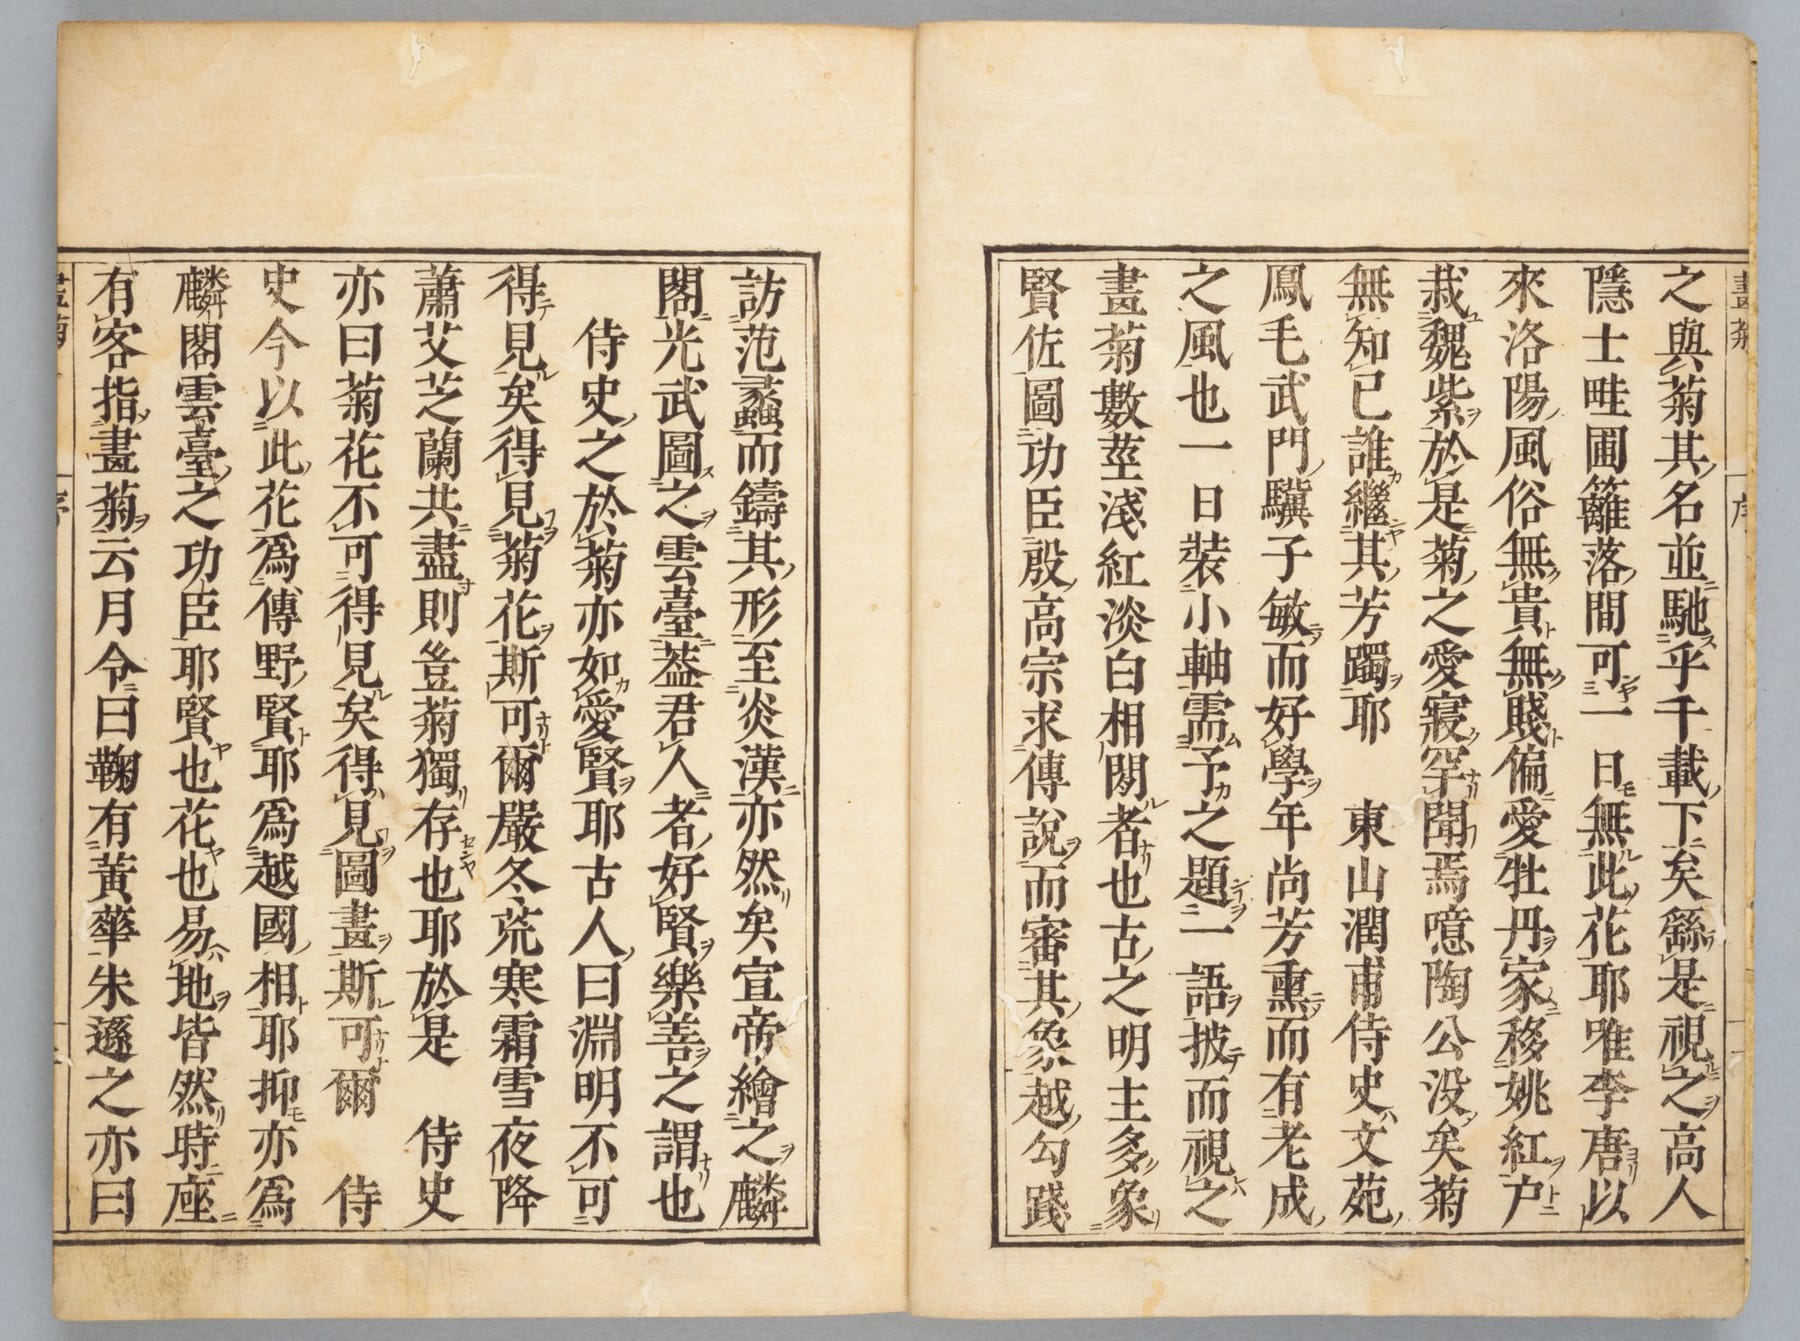 畫菊
序
之與菊其名並馳乎千載下矣繇是視之高人
隱士畦圃籬落間可一日無此花耶唯李唐以
來洛陽風俗無貴無賤偏愛牡丹家移姚紅户
栽魏紫於是菊之愛寂罕聞焉噫陶公没矣菊
無知已誰繼其芳躅耶　東山潤甫侍史文苑
鳳毛武門驥子敏而好學年尚芳熏而有老成
之風也一日装小軸需予之題一語披而視之
畫菊數莖淺紅淡白相閒者也古之明主多象
賢佐圖功臣殷高宗求傳說而審其象越勾踐
訪范蠡而鑄其形至炎漢亦然矣宣帝繪之麟
閣光武圖之雲臺葢君人者好賢樂善之謂也
侍史之於菊亦如愛賢耶古人曰淵明不可
得見矣得見菊花斯可爾嚴冬荒寒霜雪夜降
蕭艾芝蘭共盡則豈菊獨存也耶於是　侍史
亦曰菊花不可得見矣得見圖畫斯可爾　侍
史今以此花為傳野賢耶為越國相耶抑亦為
麟閣雲臺之功臣耶賢也花也易地皆然時座
有客指畫菊云月令曰鞠有黃華朱遜之亦曰
畫菊
序